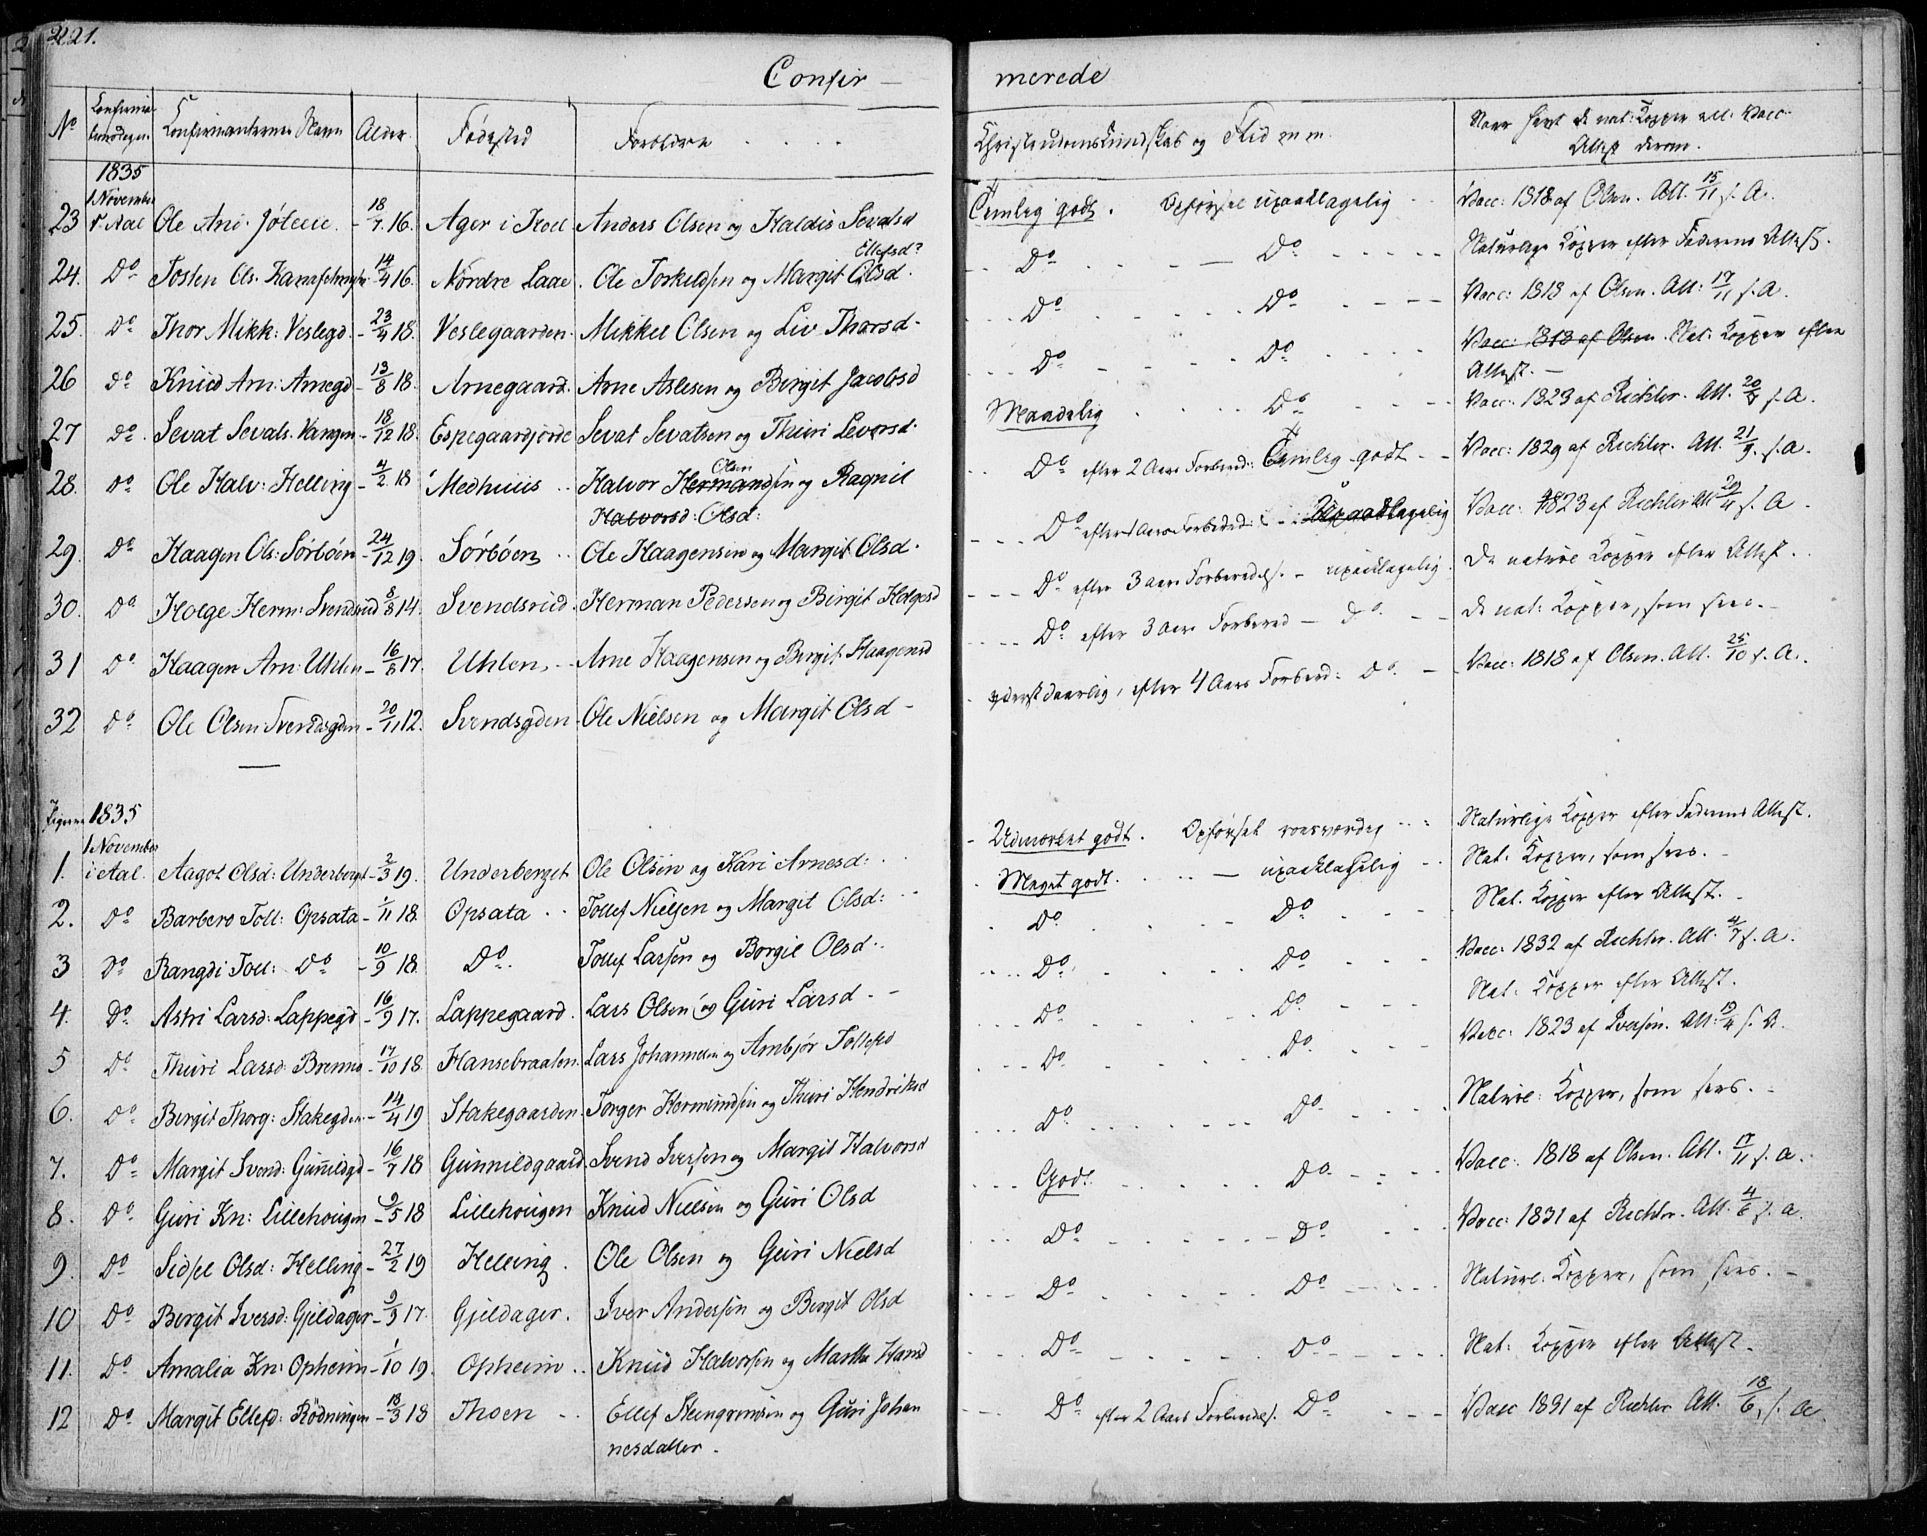 221.
Confir — merede
No Confirmationsdagen Confirmanternes Navn Alder Fødested Forældre . . . . Christendomskundskab og Flid m. m. Naar havt de nat: Kopper ell: Vacc: Attest derom.
1835
1 November
23 i Aal Ole And. - 18/7 16. Ager i Hoel Anders Olsen og Haldis Sevatsd Temlig godt. Opførsel upaaklagelig Vacc: 1818 af Olsen. Att. 15/11 s. A.
Ellefsd?
24. Do Tosten Ols. - 14/4 16. Nørdre Laae. Ole Torkildsen og Margit Olsd. Do Do Naturlige Kopper efter Faderens Attest.
25. Do Thor Mikk: Veslegd. - 23/4 18. Veslegaarden Mikkel Olsen og Liv Thorsd. Do Do Vacc: 1818 af Olsen. Att: 17/11 s. A.
26 Do Knud Arn: Arnegd. - 13/8 18. Arnegaard. Arne Aslesen og Birgit Jacobsd Do Do Vacc: 1818 af Olsen. Nat: Kopper efter Attest. —
27 Do. Sevat Sevats. Vangen - 18/12 18. Espegaardjorde Sevat Sevatsen og Thuri Leversd. Maadelig Do Vacc. 1823 af Richter. Att. 20/ s. A.
28. Do Ole Halv: Helling - 4/2 18 Medhuus Halvor Hermandsen Olsen og Ragnil Halvorsd: Olsd: Do efter 2 Aars Forbered: Temlig godt Vacc: 1829 af Richter. Att. 21/9. s. A.
29. Do Haagen Ols: Sørbøen - 24/12 19. Sørbøen Ole Haagensen og Margit Olsd. Do efter Aars Forbered: Upaaklagelig Vacc: 1823 af Richter Att 29/11 s. A
30. Do Holge Herm: Svendsrud 8/8 14. Svendsrud Herman Pedersen og Birgit Holgesd Do efter 3 Aars Forberedels. - upaaklagelig. De naturl Kopper efter Attest.
31 Do Haagen Arn: Uhlen - 16/8 17. Uhlen, Arne Haagensen og Birgit Haagensd Do efter 3 Aars Forbered - Do. De nat: Kopper, som sees. —
32 Do Ole Olsen Svendsgden - 20/11 12. Svendsgden Ole Nielsen og Margit Olsd - yderst daarlig, efter 4 Aars Forberd: Do. Vacc: 1818 af Olsen. Att. 25/10 s. A.
Pigerne 1835
1 November
1. i Aal. Aagot Olsd: Underberget - 2/3 19. Underberget Ole Olsen og Kari Arnesd: Udmærket godt. Opførsel roesværdig Naturlige Kopper efter Faderens Attest.
2. Do Barbero Toll: Opsata - 1/11 18. Opsata Tollef Nielsen og Margit Olsd: Meget godt. — upaaklagelig Nat: Kopper, som sees. —
3 Do Rangdi Toll: Do - 10/9 18. Do. Tollef Larsen og Borgil Olsd. Do Do Nat. Kopper efter Attest. —
4. Do Astri Larsd: Lappegd - 16/9 17. Lappegaard. Lars Olsen og Guri Larsd. - Do. Do Vacc: 1832 af Richter. Att. 4/7 s. A.
5 Do Thuri Larsd: Brenno - 17/10 18. Hansebraaten. Lars Johannesen og Ambjør Tollefsd Do Do Nat: Kopper efter Attest.
6. Do Birgit Thorg: Stakegden - 14/4 19 Stakegaarden Torger Hermundsen og Thuri Hendriksd Do Do. Vacc: 1823 af Iversen. Att: 19/4 s. A.
7. Do Margit Svend: Gunnildgd - 16/7 18 Gunnildgaard Svend Iversen og Margit Halvorsd Do Do. Naturl: Kopper, som sees. —
8. Do Guri Kn: Lillehougen - 9/5 18 Lillehougen Knud Nielsen og Guri Olsd Godt. Do Vacc: 1818 af Olsen. Att. 17/11 s. A.
9. Do Sidsel Olsd: Helling - 27/2 19 Helling. Ole Olsen og Guri Nielsd Do Do Vacc: 1831 af Richter. Att. 4/6 s. A.
10 Do Birgit Iversd: Gjeldager - 9/9 17. Gjeldager. Iver Andersen og Birgit Olsd Do Do Naturl: Kopper, som sees. —
11. Do Amalia Kn: Opheim - 1/10 19. Opheim Knud Halvorsen og Martha Hansd Do Do Nat: Kopper efter Attest.
12 Do Margit Ellefsd: Rødningen - 18/3 18 Thoen Ellef Steingrimsen og Guri Johannesdatter. Do efter 2 Aars Forberedels. Do Vacc 1831 af Richter Att. 18/6, s. A.